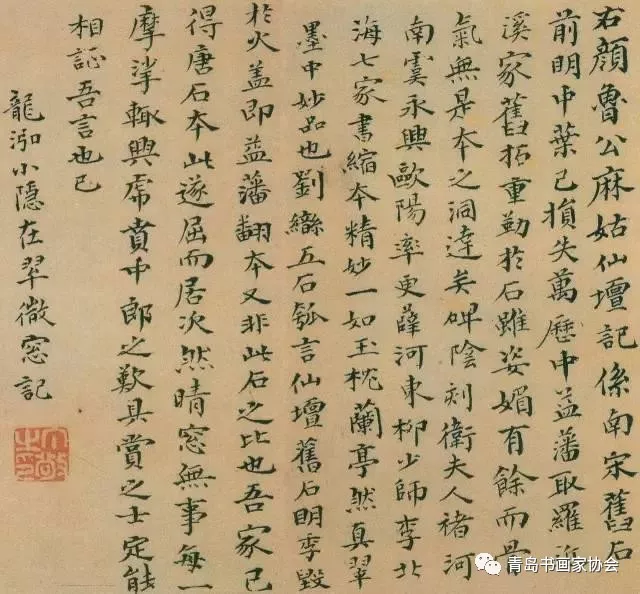 右顔魯公麻姑仙壇記係南宋舊石
前明中葉已損失萬歷中益藩取羅近
溪家舊拓重勒於石雖姿媚有餘而骨
氣無是本之洞達矣碑陰刻衛夫人褚河
南虞永興歐陽率更薛河東柳少師李北
海七家書縮本精妙一如玉枕蘭亭然真翠
墨中妙品也劉繼五石瓠言仙壇舊石明季毀
於火蓋即益藩翻本又非此石之比也吾家已
得唐石本此遂屈而居次然晴窓無事每一
摩挲輒興虎賁中郎之歎具賞之士定能
相証吾言也已
龍泓小隱在翠微窓記
青岛书画家协会